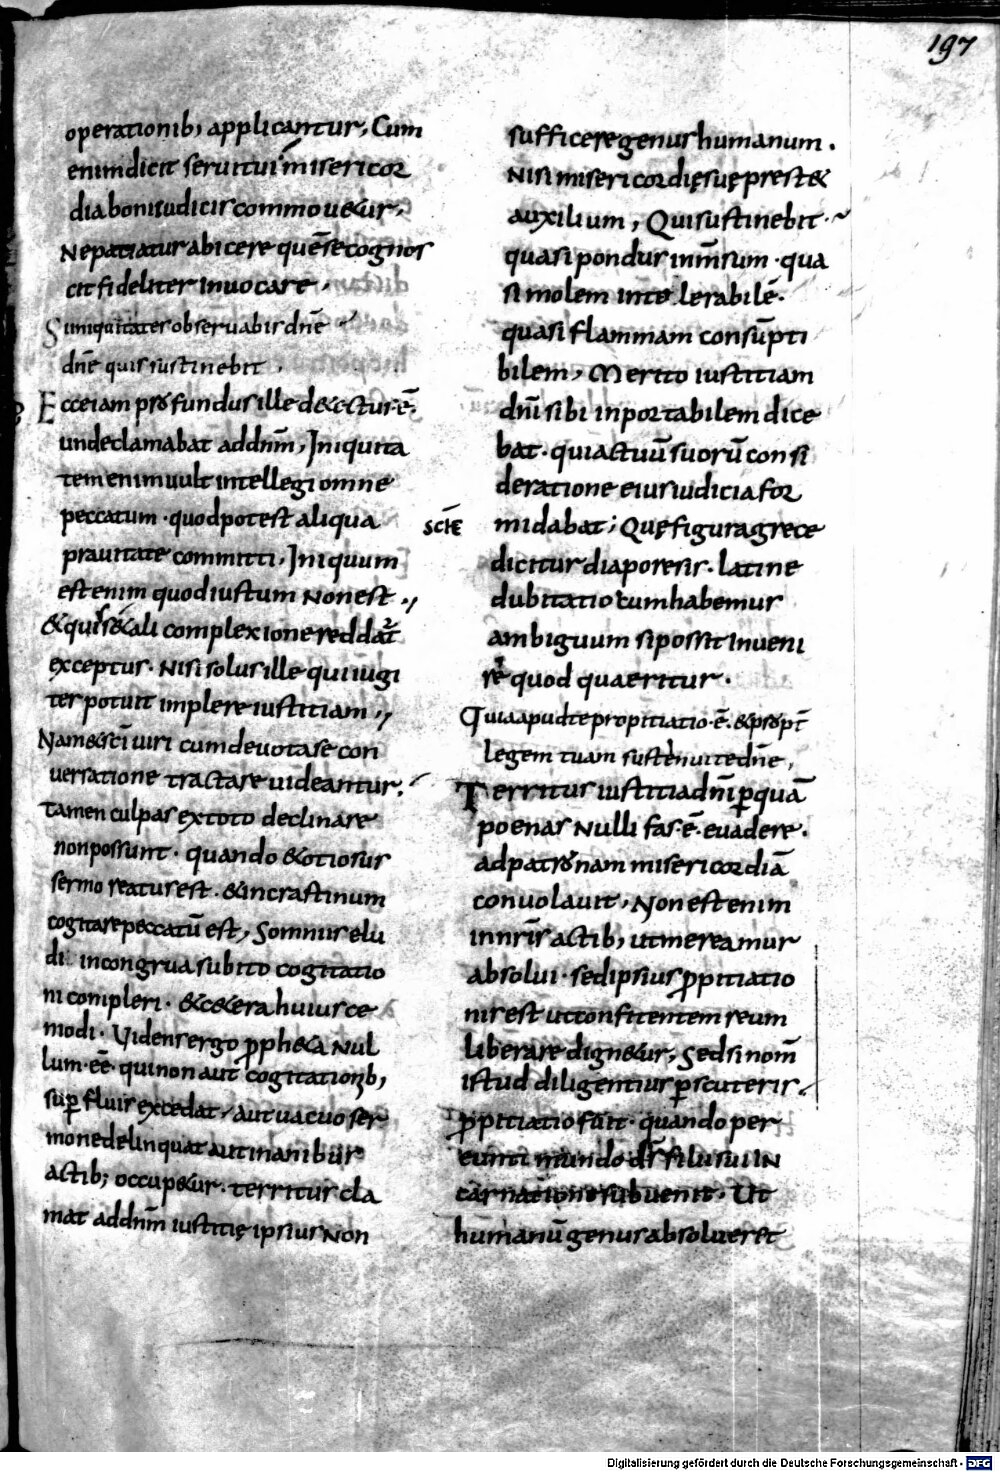 197
operationib; applicantur, Cum
enim dicit seruitui misericor
dia boni iudicis commouetur,
Ne patiatur abicere quē se cognos
cit fideliter inuocare.
Si iniquitates obseruabis dnē
dnē quis sustinebit.
Ecce iam profundus ille detectus ē.
unde clamabat ad dnm̄, Iniquita
tem enim uult intellegi omne
peccatum. quod potest aliqua
prauitate committi, Iniquum
est enim quod iustum non est.,
& quis & ali complexione reddat̄
exceptus. Nisi solus ille qui iugi
ter potuit implere iustitiam,,
Nam & sc̄i uiri cum deuota se con
uersatione tractare uideantur.
tamen culpas ex toto declinare
non possunt. quando & otiosus
sermo reatus est. & in crastinum
cogitare peccatū est, Somnis elu
di incongrua subito cogitatio
ni compleri. & cetera huiusce
modi. Uidens ergo propheta nul
lum ēē. qui non aut cogitationib;
sup̄fluis excedat, aut uacuo ser
mone delinquat aut inanibus
actib; occupetur. territus cla
mat ad dnm̄ iustitię ipsius non
sufficere genus humanum.
Nisi misericordię suę prestet
auxilium, Qui sustinebit.
quasi pondus inm̄sum. qua
si molem intolerabilē.
quasi flammam consūpti
bilem, Merito iustitiam
dnī sibi inportabilem dice
bat. qui actuū suorū consi
deratione eius iudicia for
midabat; Quę figura grece
dicitur diaporesis. latine
dubitatio cum habemus
ambiguum si possit inueni
re quod quaeritur.
Quia apud te propitiatio ē. & propt̄
legem tuam sustenui te dnē,
Territus iustitia dnī p̱ quā
poenas nulli fas ē euadere.
ad patronam misericordiā
conuolauit, Non est enim
in nrīs actib; ut mereamur
absolui. sed ipsius ꝓpitiatio
nis est ut confitentem reum
liberare dignetur, Sed si nom̄
istud diligentius p̱scuteris.
ꝓpitiatio fuit. quando per
eunti mundo dī filius sui in
carnatione subuenit. Ut
humanū genus absolueret
Digitalisierung gefördert durch die Deutsche Forschungsgemeinschaft - DFG